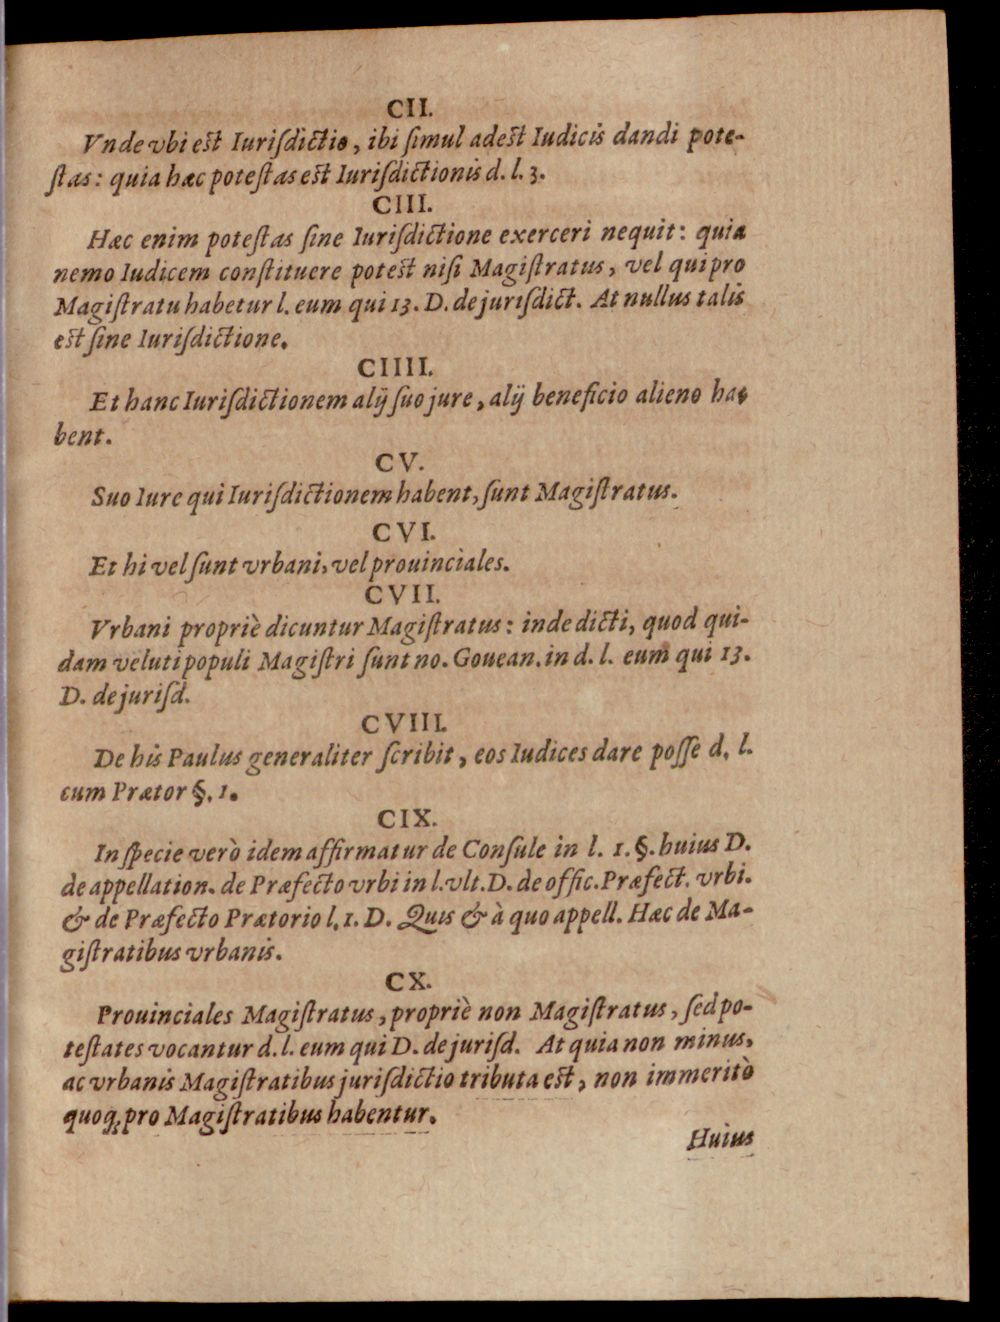 CII.
Vnde vbi est Iurisdictio, ibi simul adest Iudicis dandi pote-
stas: quia hæc potestas est Iurisdictionis d. l. 3.
CIII.
Hæc enim potestas sine Iurisdictione exerceri nequit: quia
nemo Iudicem constituere potest nisi Magistratus, vel qui pro
Magistratu habetur l. eum qui 13. D. de jurisdict. At nullus talis
est sine Iurisdictione.
CIIII.
Et hanc Iurisdictionem alij suo jure, alij beneficio alieno ha-
bent.
CV.
Suo Iure qui Iurisdictionem habent, sunt Magistratus.
CVI.
Et hi vel sunt vrbani, vel prouinciales.
CVII.
Vrbani propriè dicuntur Magistratus: inde dicti, quod qui-
dam veluti populi Magistri sunt no. Gouean. in d. l. eum qui 13.
D. de jurisd.
CVIII.
De his Paulus generaliter scribit, eos Iudices dare posse d. l.
cum Prætor §. 1.
CIX.
In specie verò idem affirmatur de Consule in l. 1. §. huius D.
de appellation. de Præfecto vrbi in l. vlt. D. de offic. Præfect. vrbi.
& de Præfecto Prætorio l. 1. D. Quis & à quo appell. Hæc de Ma-
gistratibus vrbanis.
CX.
Prouinciales Magistratus, propriè non Magistratus, sed po-
testates vocantur d. l. eum qui D. de jurisd. At quia non minus,
ac vrbanis Magistratibus jurisdictio tributa est, non immeritò
quoq; pro Magistratibus habentur.
Huius